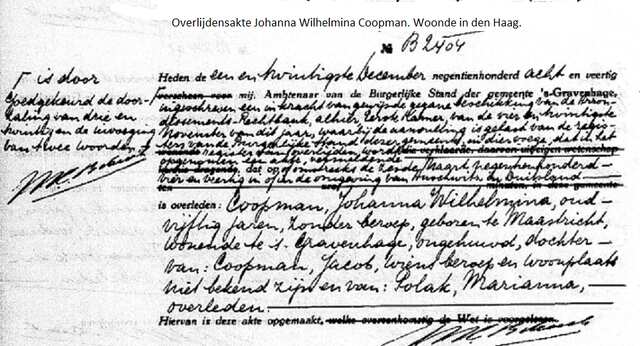 Overlijdensakte Johanna Wilhelmina Coopman. Woonde in den Haag.
№ B2404
Γ is door
Goedgekeurd de door-
haling van drie en
twintig en de invoeging
van twee woorden
Heden de een en twintigste December negentienhonderd acht en veertig
Γ verscheen voor mij, Ambtenaar van de Burgerlijke Stand der gemeente 's-Gravenhage,
ingeschreven een in kracht van gewijsde gegane beschikking van de Arron-
dissements-Rechtbank, alhier, Eerste Kamer, van de vier en twintigste
November van dit jaar, waarbij de aanvulling is gelast van de regis-
ters van de Burgerlijke Stand dezer gemeente, in dier voege, dat in het
opgenomen zij een akte, vermeldende
dat op of omstreeks de Maart negentienhonderd
vier en veertig in of in de omgeving van Auschwitz in Duitsland
is overleden: Coopman, Johanna Wilhelmina, oud
vijftig jaren, zonder beroep, geboren te Maastricht,
wonende te 's-Gravenhage, ongehuwd, dochter
van: Coopman, Jacob, wiens beroep en woonplaats
niet bekend zijn en van: Polak, Marianna,
overleden.
Hiervan is deze akte opgemaakt, welke overeenkomstig de Wet is voorgelezen.